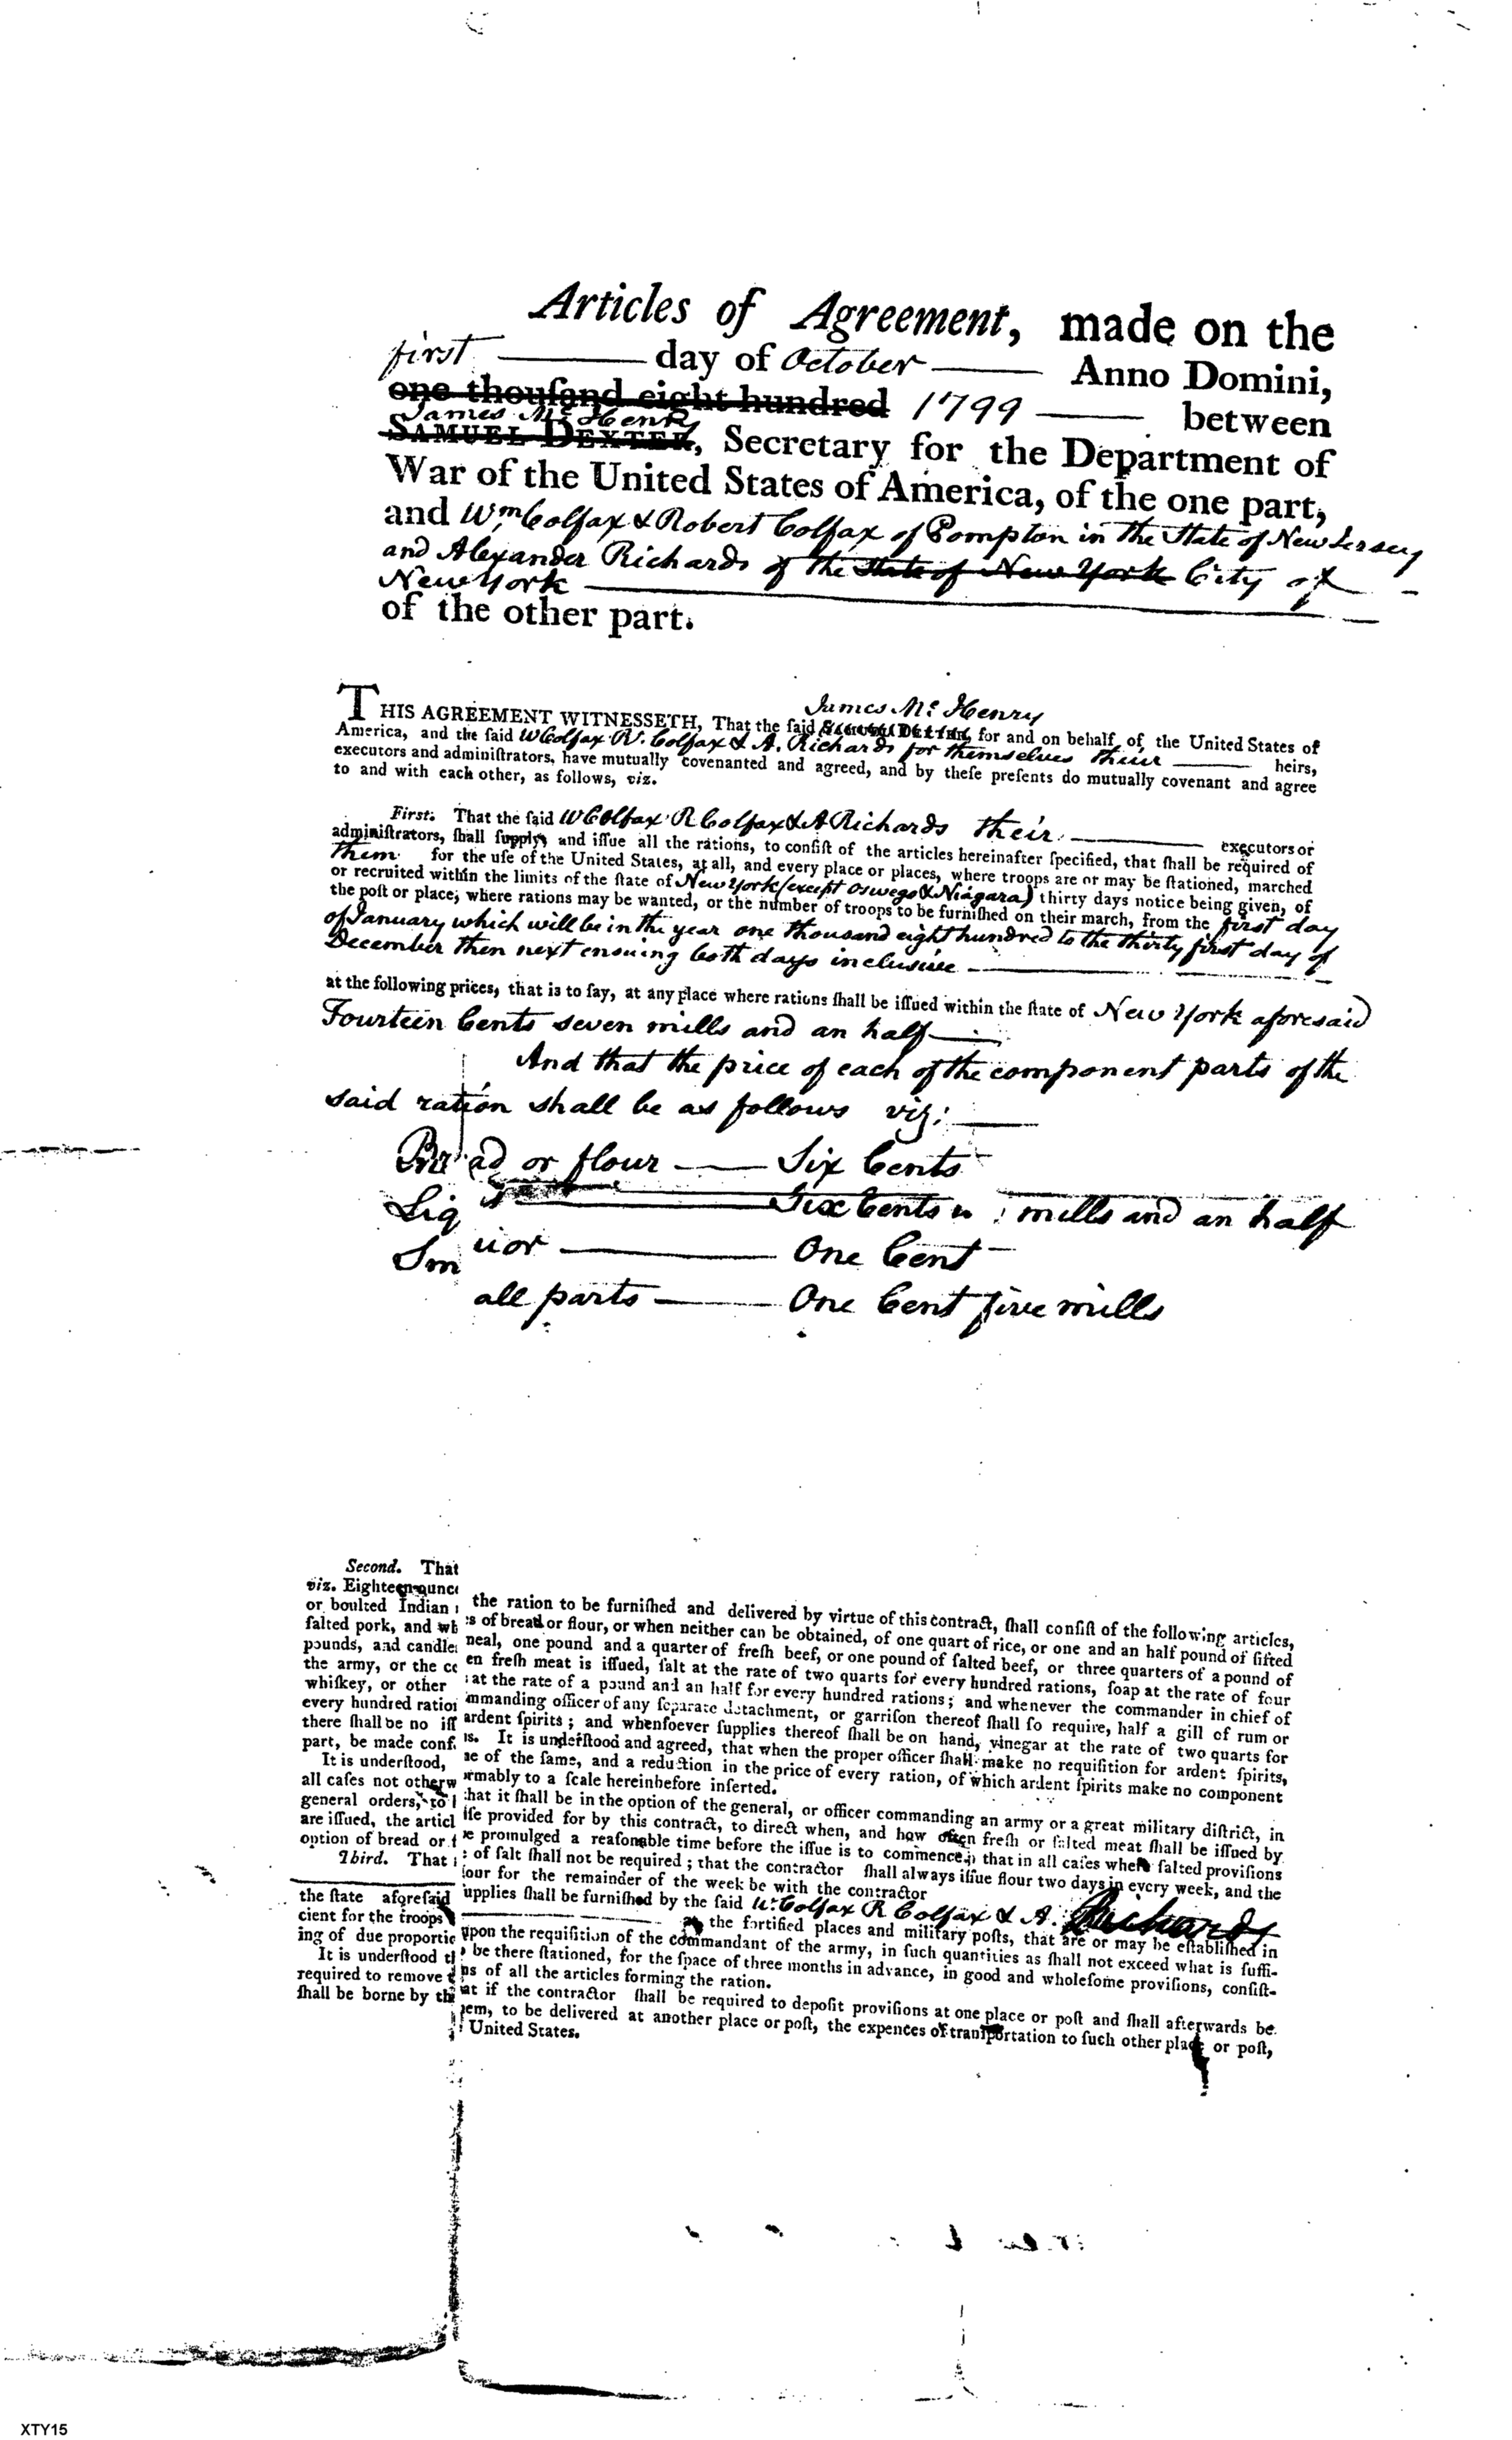 Articles of Agreement, made on the
first day of October Anno Domini,
one thouſand eight hundred 1799 between
James Mc Henry
SAMUEL DEXTER, Secretary for the Department of
War of the United States of America, of the one part,
and Wm Colfax & Robert Colfax of Pompton in the State of New Jersey
and Alexander Richards of the State of New York City of
New York
of the other part.
James Mc Henry
THIS AGREEMENT WITNESSETH, That the ſaid for and on behalf of the United States of
America, and the ſaid W Colfax R. Colfax & A. Richards for themselves their heirs,
executors and adminiſtrators, have mutually covenanted and agreed, and by theſe preſents do mutually covenant and agree
to and with each other, as follows, viz.
Firſt. That the ſaid W Colfax R Colfax & A Richards their executors or
adminiſtrators, ſhall ſupply and iſſue all the rations, to conſiſt of the articles hereinafter ſpecified, that ſhall be required of
them for the uſe of the United States, at all, and every place or places, where troops are or may be ſtationed, marched
or recruited within the limits of the ſtate of New York (except Oswego & Niagara) thirty days notice being given, of
the poſt or place, where rations may be wanted, or the number of troops to be furniſhed on their march, from the first day
of January which will be in the year one thousand eight hundred to the thirty first day of
December then next ensuing both days inclusive
at the following prices, that is to ſay, at any place where rations ſhall be iſſued within the ſtate of New York aforesaid
Fourteen Cents seven mills and an half
And that the price of each of the component parts of the
said ration shall be as follows viz:
Bread or flour Six Cents
Six Cents mills and an half
Liquor One Cent
Small parts One Cent five mills
Second. That the ration to be furniſhed and delivered by virtue of this contract, ſhall conſiſt of the following articles,
viz. Eighteen ounces of bread or flour, or when neither can be obtained, of one quart of rice, or one and an half pound of ſifted
or boulted Indian meal, one pound and a quarter of freſh beef, or one pound of ſalted beef, or three quarters of a pound of
ſalted pork, and when freſh meat is iſſued, ſalt at the rate of two quarts for every hundred rations, ſoap at the rate of four
pounds, and candles at the rate of a pound and an half for every hundred rations; and whenever the commander in chief of
the army, or the commanding officer of any ſeparate detachment, or garriſon thereof ſhall ſo require, half a gill of rum or
whiſkey, or other ardent ſpirits; and whenſoever ſupplies thereof ſhall be on hand, vinegar at the rate of two quarts for
every hundred rations. It is underſtood and agreed, that when the proper officer ſhall make no requiſition for ardent ſpirits,
there ſhall be no iſſue of the ſame, and a reduction in the price of every ration, of which ardent ſpirits make no component
part, be made conformably to a ſcale hereinbefore inſerted.
It is underſtood, that it ſhall be in the option of the general, or officer commanding an army or a great military diſtrict, in
all caſes not otherwiſe provided for by this contract, to direct when, and how often freſh or ſalted meat ſhall be iſſued by
general orders, to be promulged a reaſonable time before the iſſue is to commence; that in all caſes where ſalted proviſions
are iſſued, the article of ſalt ſhall not be required; that the contractor ſhall always iſſue flour two days in every week, and the
option of bread or flour for the remainder of the week be with the contractor
Third. That ſupplies ſhall be furniſhed by the ſaid W. Colfax R Colfax & A. Richards
at the fortified places and military poſts, that are or may be eſtabliſhed in
the ſtate aforeſaid upon the requiſition of the commandant of the army, in ſuch quantities as ſhall not exceed what is ſuffi-
cient for the troops to be there ſtationed, for the ſpace of three months in advance, in good and wholeſome proviſions, conſiſt-
ing of due proportions of all the articles forming the ration.
It is underſtood that if the contractor ſhall be required to depoſit proviſions at one place or poſt and ſhall afterwards be
required to remove them, to be delivered at another place or poſt, the expences of tranſportation to ſuch other place or poſt,
ſhall be borne by the United States.
XTY15